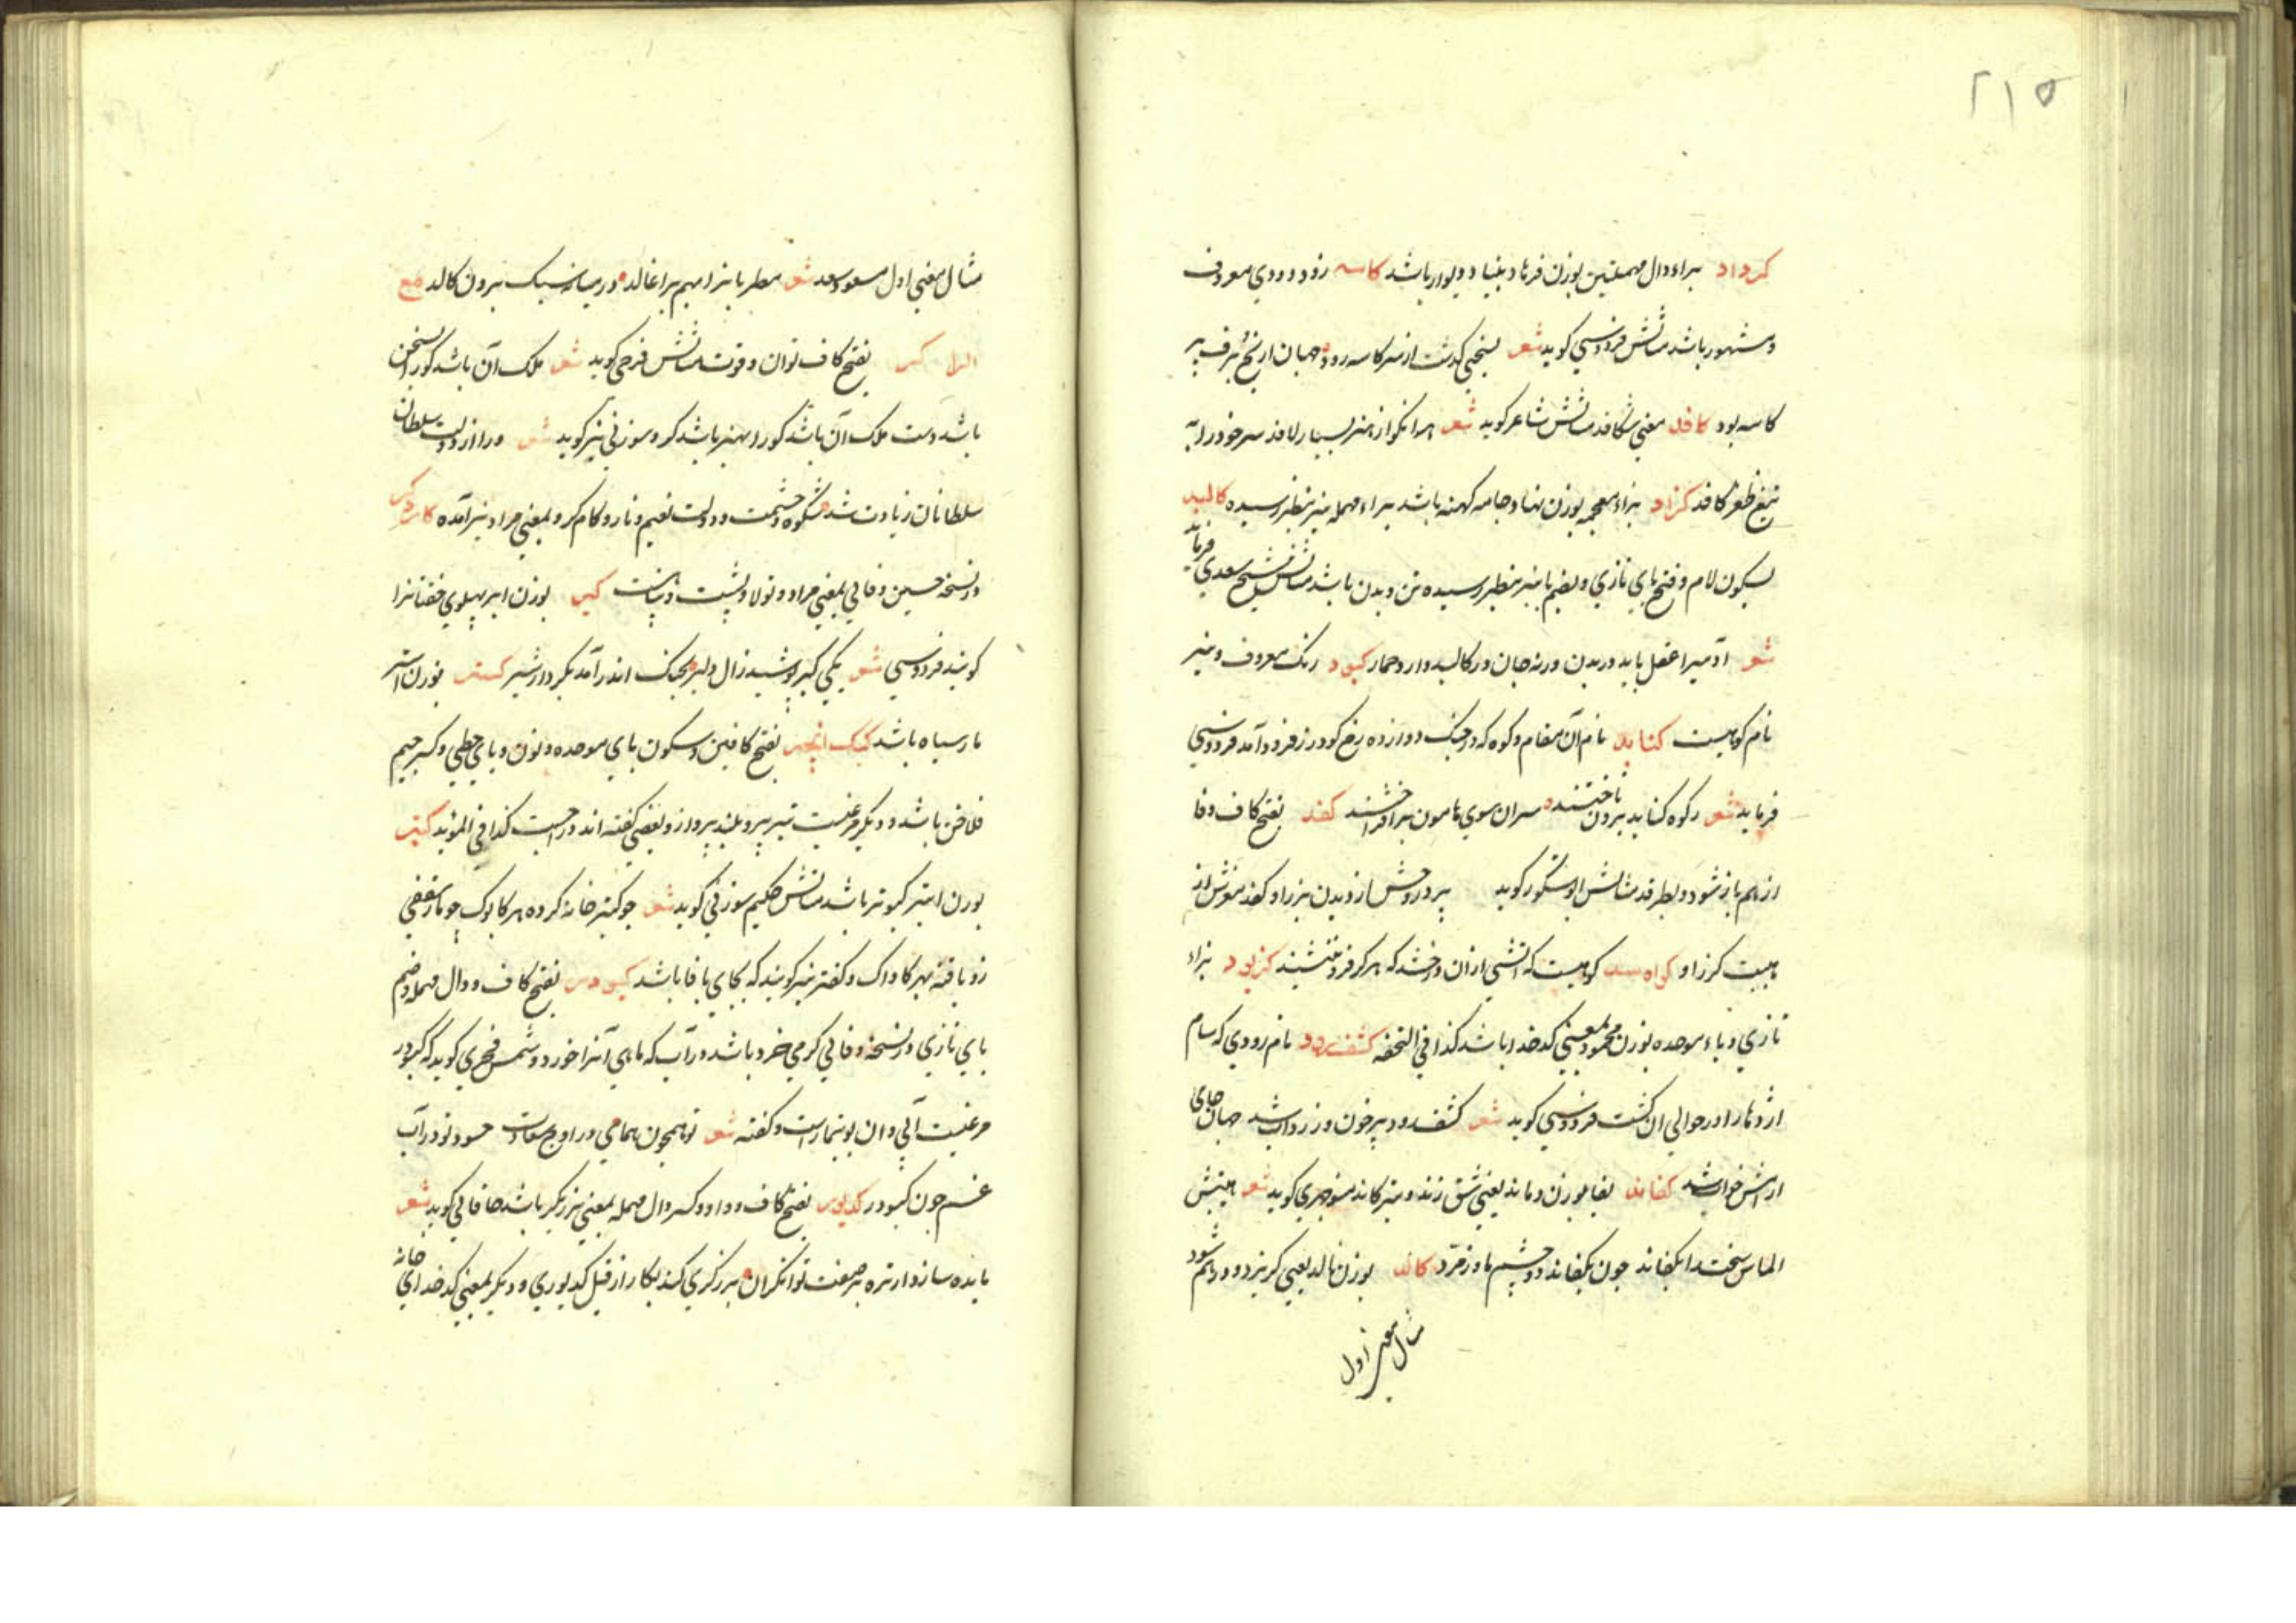 ۲۱۵
کرداد براء و دال مهملتین بوزن فرهاد بنیاد دیوار باشد کاسه رود رودی معروف
و مشهور باشد مثالش فردوسی کوید شعر کذشت از سر کاسه رود جهان از برف پر
کاسه بود کافد معنی شکافد مثالش شاعر کوید شعر هر انکو از هنر بسیار لافد سر خود را به
تیغ ظفر کافد کزاد بزاء معجمه بوزن نهاد جامه کهنه باشد براء مهمله نیز بنظر رسیده کالبد
بسکون لام و فتح بای تازی و بضم با نیز بنظر رسیده تن و بدن باشد مثالش شیخ سعدی فرماید
شعر آدمیرا عقل باید در بدن ورنه جان در کالبد دارد حمار کبود رنک معروف و نیز
نام کوهیست کنابد نام آن مقام و کوه که در جنک دوازده رخ کودرز فرود آمد فردوسی
فرماید شعر ز کوه کنابد برون تاختند سران سوی هامون برافراختند کفد بفتح کاف و فا
از هم باز شود و بطرقد مثالش ابوشکور کوید از دیدن برز او کفد مغزش از
هیبت کرز او کوهیست که آتشی از آن درخشد که هرکز فرو ننشیند کزبود بزاء
تازی و باء موحده بوزن محمود بمعنی کدخدا باشد کذا فی التحفه کشف رود نام رودی که سام
اژدها را در حوالی آن کشت فردوسی کوید شعر کشف رود پر خون و زرداب شد جهان جای
آرامش و خواب شد کفاند بفا بوزن دماند یعنی شق زند و نیز کاند منوچهری کوید شعر
الماس سخت را بکفاند چون بکفاند دو چشم مار زمرد کالد بوزن نالد یعنی کریزد و درهم شود
مثال معنی اول
مثال معنی اول مسعود سعد شعر میانه سبک برون کالد مع
الراء کر بفتح کاف توان و قوت مثالش فرخی کوید شعر ملک آن باشد کو را سخن
باشد دست ملک آن باشد کو را بهنر باشد کر و سوزنی نیز کوید شعر ورا از دولت سلطان
سلطانان زیادت شد شکوه و حشمت و دولت نعیم و ناز و کام کر و بمعنی مراد نیز آمده
و در نسخه حسین وفائی بمعنی مراد و تولا و پشت و کبر بوزن ابر بپهلوی خفتانرا
کویند فردوسی شعر یکی کبر پوشید زال دلیر بجنک اندر آمد بکردار شیر کستر بوزن استر
مار سیاه باشد کبک انجیر بفتح کافین و سکون بای موحده و نون و یای حطی و کسر جیم
فلاخن باشد و دیکر مرغیست تیز پر و بلند پرواز و بعضی کفته اند دراجست کذا فی المؤید کبتر
بوزن ابتر کبوتر باشد مثالش حکیم سوزنی کوید شعر چو کبتر خانه کرده هر کابوک
کاواک و کفتر نیز کویند که بجای با فا باشد کبودر بفتح کاف و دال مهمله و ضم
بای تازی در نسخه وفائی کرمی خرد باشد در آب که ماهی آنرا خورد و شمس فخری کوید که کبودر
مرغیست آبی و آن بوتیمارست و کفته شعر تو همچون همائی در اوج سعادت حسود تو در آب
غم چون کبودر کدیور بفتح کاف و واو و کسر دال مهمله بمعنی برزیکر باشد خاقانی کوید شعر
توانکران برزکری کند بکار از قبل کدیوری و دیکر بمعنی کدخدای خانه